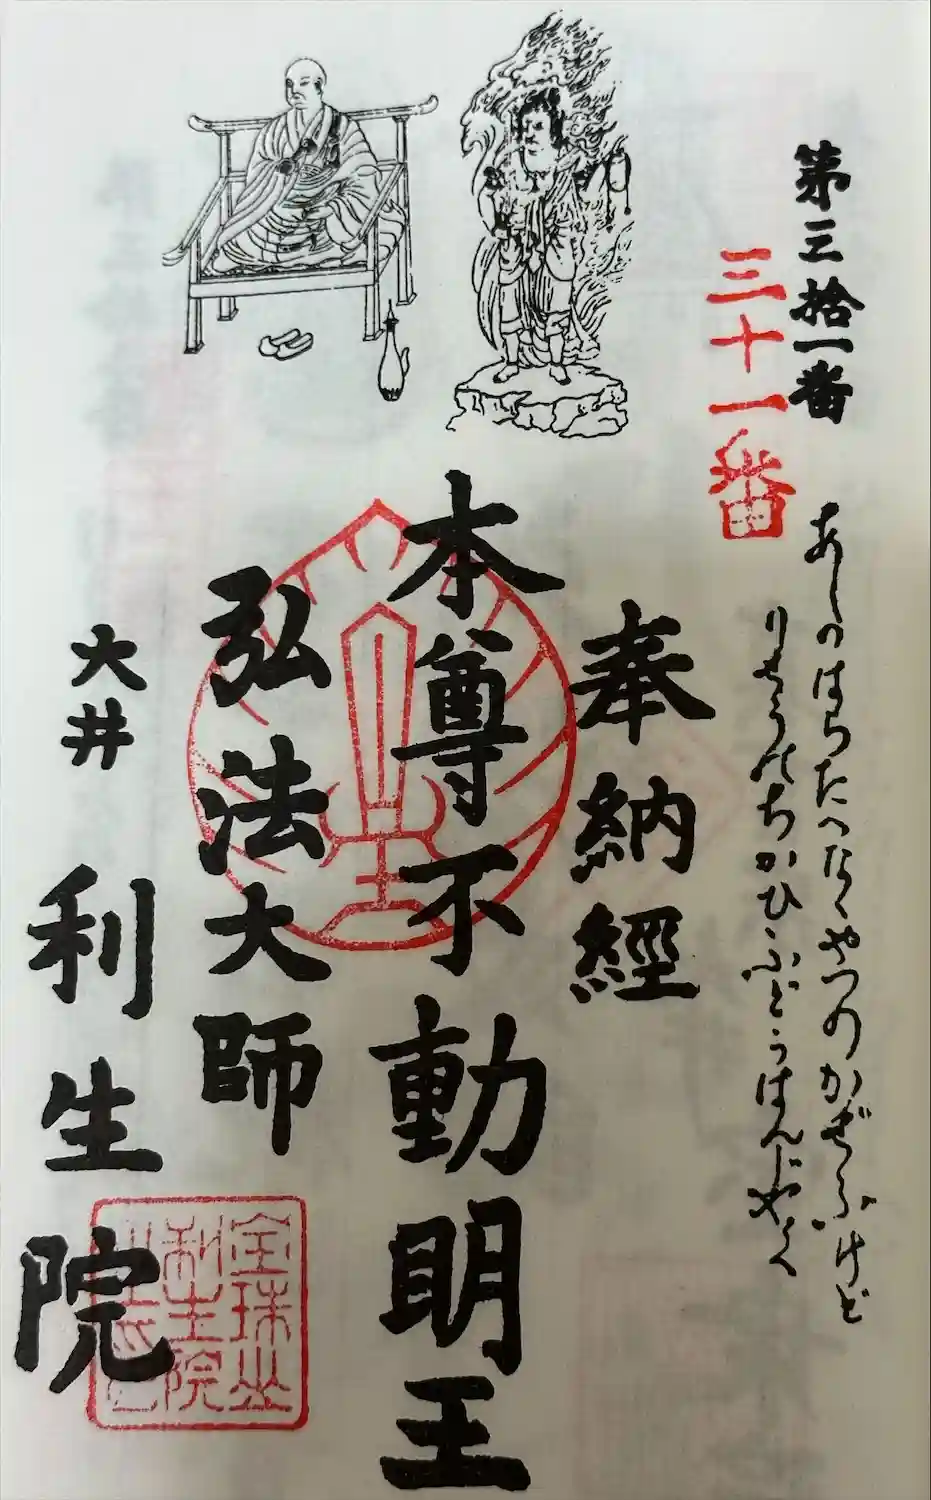 第三拾一番
三十一番
あしのはらたへなくやつのかぜふけど
りせうのちかひふどうばんじやく
奉納經
本尊不動明王
弘法大師
大井 利生院
金珠山
利生院